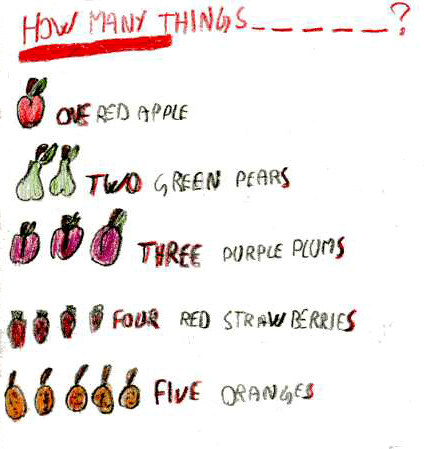 HOW MANY THINGS_ _ _ _ _ _?
ONE RED APPLE
TWO GREEN PEARS
THREE PURPLE PLUMS
FOUR RED STRAWBERRIES
FIVE ORANGES